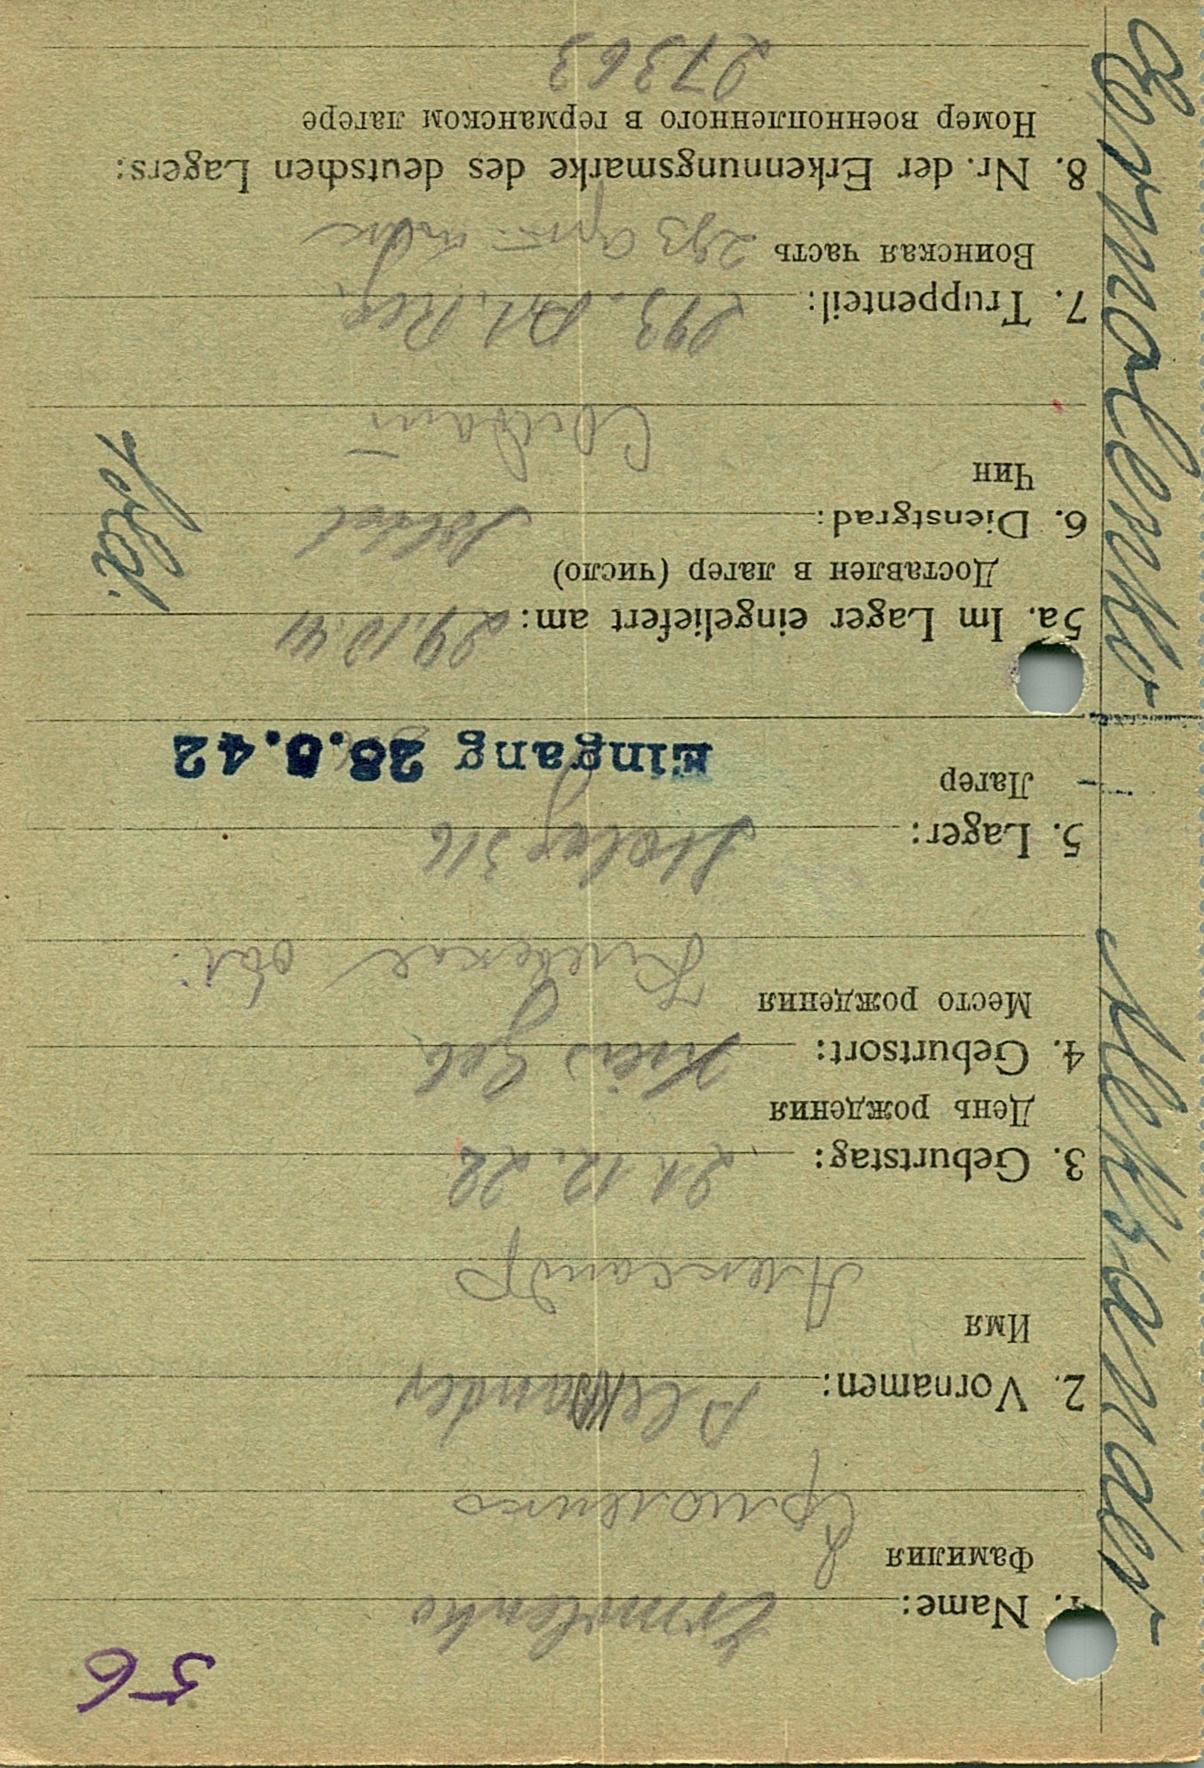 56
1. Name: Ermolenko
Фамилия
Ермоленко
2. Vornamen: Aleksander
Имя
Александр
3. Geburtstag: 21.12.22
День рождения
4. Geburtsort: Kiew Geb.
Место рождения
Киевская обл.
5. Lager: Stalag 316
Лагер
Eingang 28.8.42
5a. Im Lager eingeliefert am: 29.10.41
Доставлен в лагер (число)
6. Dienstgrad: Soldat
Чин
Солдат
Sold.
7. Truppenteil: 293. Art. Reg.
Воинская часть
293 арт.
8. Nr. der Erkennungsmarke des deutschen Lagers:
Номер военнопленного в германском лагере
27363
Ermolenko Aleksander